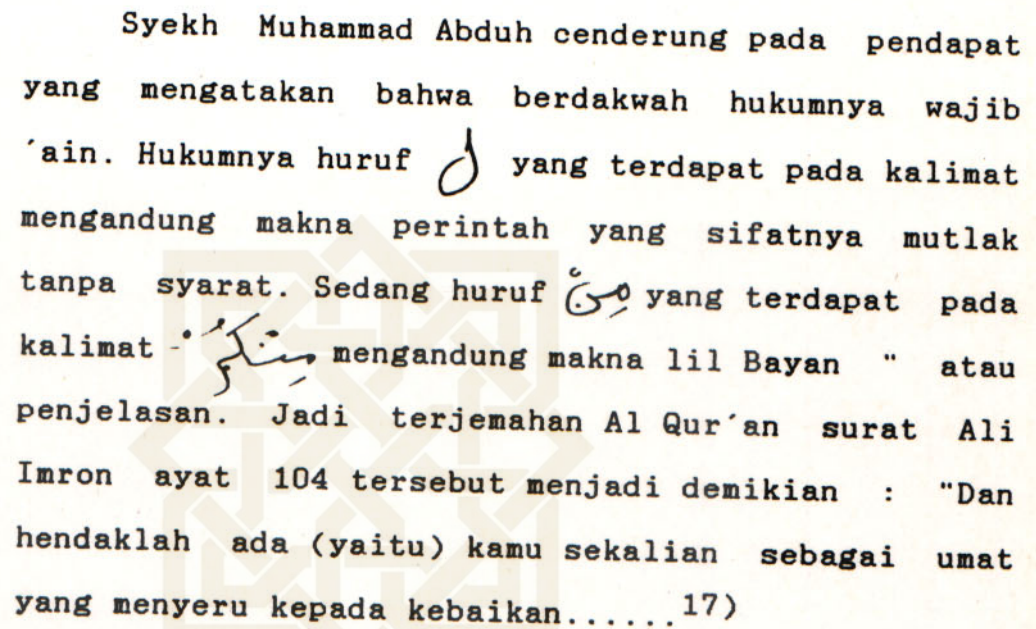 Syekh Muhammad Abduh cenderung pada pendapat
yang mengatakan bahwa berdakwah hukumnya wajib
´ain. Hukumnya huruf ل yang terdapat pada kalimat
mengandung makna perintah yang sifatnya mutlak
tanpa syarat. Sedang huruf مِنْ yang terdapat pada
kalimat منكم mengandung makna lil Bayan " atau
penjelasan. Jadi terjemahan Al Qur´an surat Ali
Imron ayat 104 tersebut menjadi demikian : "Dan
hendaklah ada (yaitu) kamu sekalian sebagai umat
yang menyeru kepada kebaikan......17)